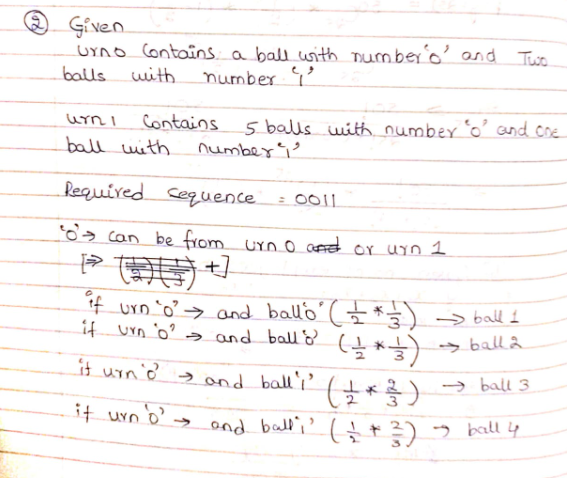 ② Given
urn 0 Contains a ball with number '0' and Two
balls with number '1'
urn 1 Contains 5 balls with number '0' and one
ball with number '1'
Required sequence = 0011
'0' → can be from urn 0 and or urn 1
[⇒ (1/2)(1/3) +]
if urn '0' → and ball '0' (1/2 * 1/3) → ball 1
if urn '0' → and ball '0' (1/2 * 1/3) → ball 2
if urn '0' → and ball '1' (1/2 * 2/3) → ball 3
if urn '0' → and ball '1' (1/2 * 2/3) → ball 4